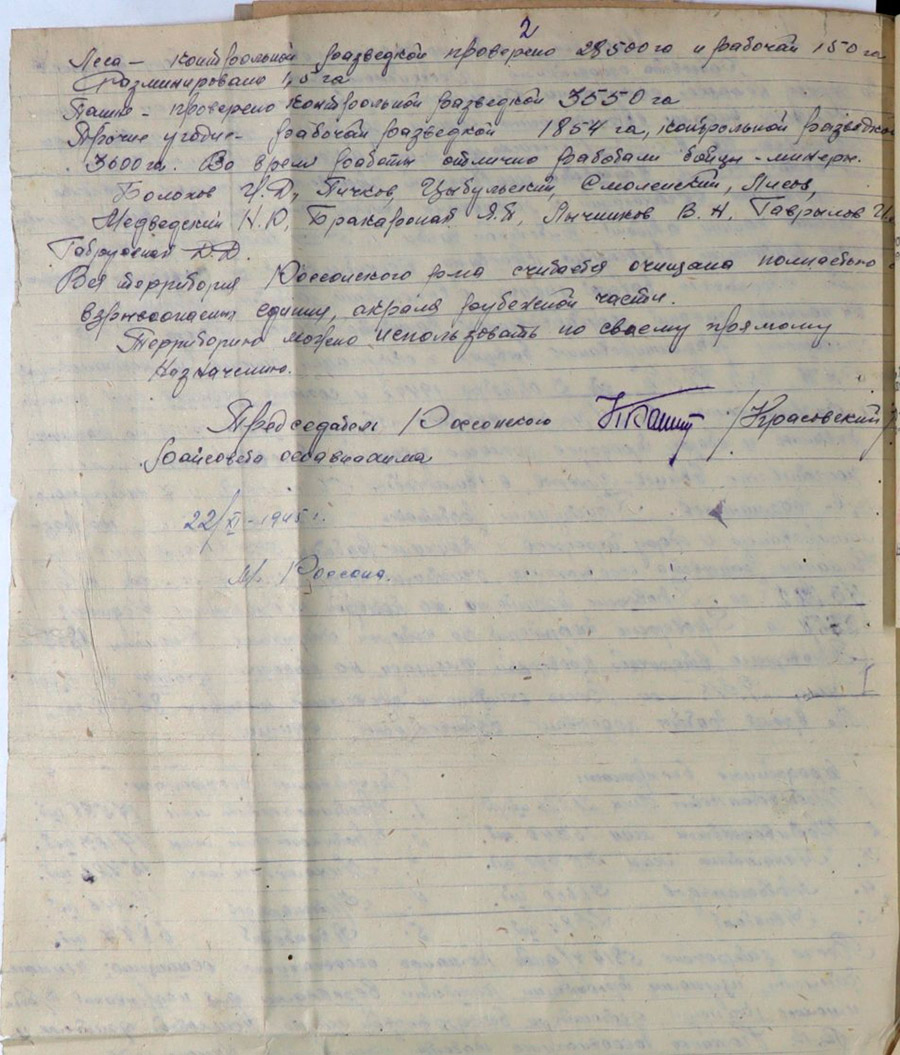 2
Леса - контрольной разведкой проверено 28500 га и рабочай 150 га
Розминировано 1,5 га
Пашни - проверено контрольной разведкой 3550 га
Прочие угодие - рабочай разведкой 1854 га, контрольной разведкой
3600 га. Во время работы отлично работали бойцы - минеры.
Болохов И.Д, Пичков, Цыбульский, Смоленский, Лисов,
Медведский Н.Ю, Л.П, Лычников В.Н. Гаврылов И.
Д.Д.
Вся территория Россонского р-на считается очищана полностью
взрывоопасных единиц, акрамя рубежной части.
Территорию можно использовать по сваему прямому
Назначению.
Председатель Россонского /Красовский/
райсовета осоавиахима
22/XI-1945 г.
м. Россоны.